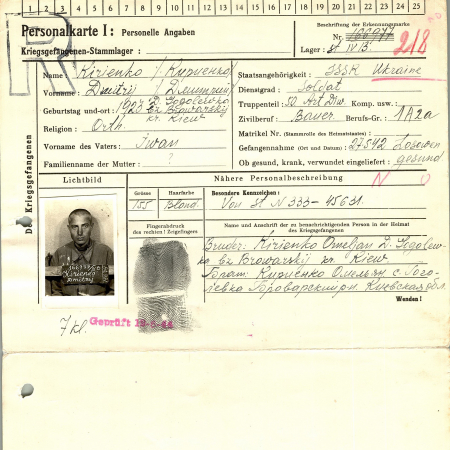 1 2 3 4 5 6 7 8 9 10 11 12 13 14 15 16 17 18 19 20 21 22 23 24 25
Personalkarte I: Personelle Angaben
Kriegsgefangenen-Stammlager:
Beschriftung der Erkennungsmarke
Nr. 166977
Lager: St IV B
218
Des Kriegsgefangenen
Name: Kirienko / Кириенко
Vorname: Dmitrij / Дмитрий
Geburtstag und-ort: 1927
kr. Kiew
Religion: Orth.
Vorname des Vaters: Iwan
Familienname der Mutter: ?
Staatsangehörigkeit: Ukraine
Dienstgrad: Soldat
Truppenteil: Komp. usw.:
Zivilberuf: Bauer Berufs-Gr.: 1A2a
Matrikel Nr. (Stammrolle des Heimatstaates):
Gefangennahme (Ort und Datum):
Ob gesund, krank, verwundet eingeliefert: gesund
Lichtbild
Nähere Personalbeschreibung
Grösse Haarfarbe Besondere Kennzeichen:
155 Blond Von St N 333-45631
Fingerabdruck
des rechten! Zeigefingers
Name und Anschrift der zu benachrichtigenden Person in der Heimat
des Kriegsgefangenen
Bruder: Kirienko Omelian
kr. Kiew
Брат: Кириенко Омельян с. Гого-
левка Броварский рн. Киевская обл.
Wenden!
Kirienko
Dmitrij
7 kl. Geprüft